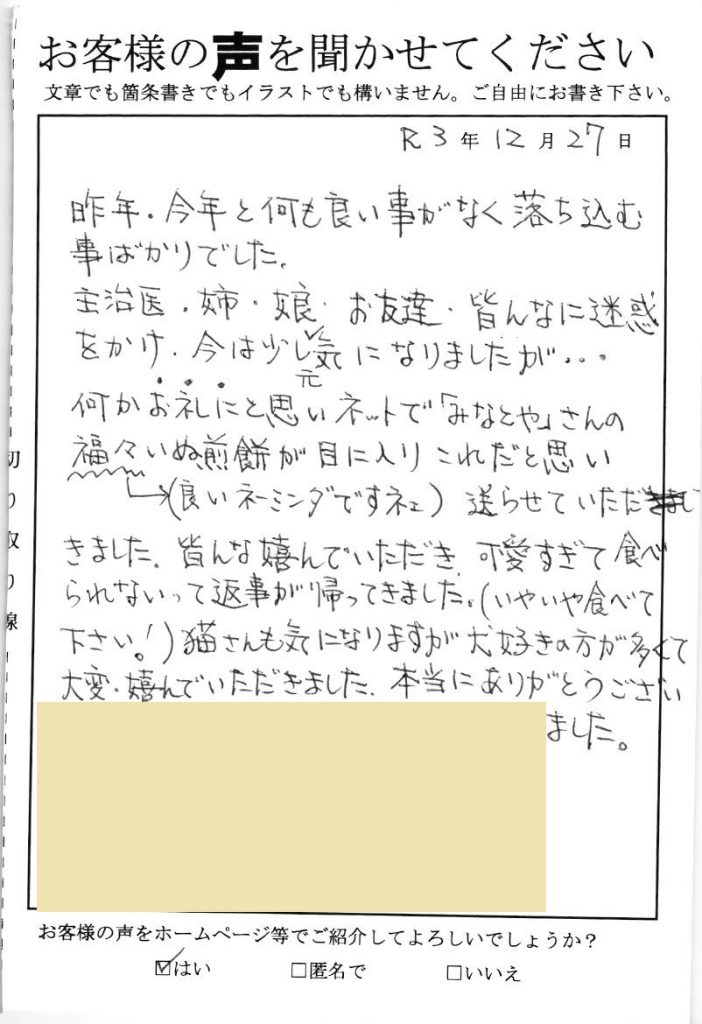 お客様の声を聞かせてください
文章でも箇条書きでもイラストでも構いません。ご自由にお書き下さい。
R3年12月27日
昨年・今年と何も良い事がなく落ち込む
事ばかりでした。
主治医・姉・娘・お友達・皆んなに迷惑
をかけ・今は少し元気になりましたが・・・
何かお礼にと思いネットで「みなとや」さんの
福々いぬ煎餅が目に入りこれだと思い
→(良いネーミングですネェ) 送らせていただ
きました。皆んな嬉んでいただき 可愛すぎて食べ
られないって返事が帰ってきました。(いやいや食べて
下さい!)猫さんも気になりますが犬好きの方が多くて
大変・嬉んでいただきました。本当にありがとうござい
ました。
切り取り線
お客様の声をホームページ等でご紹介してよろしいでしょうか?
☑はい □匿名で □いいえ